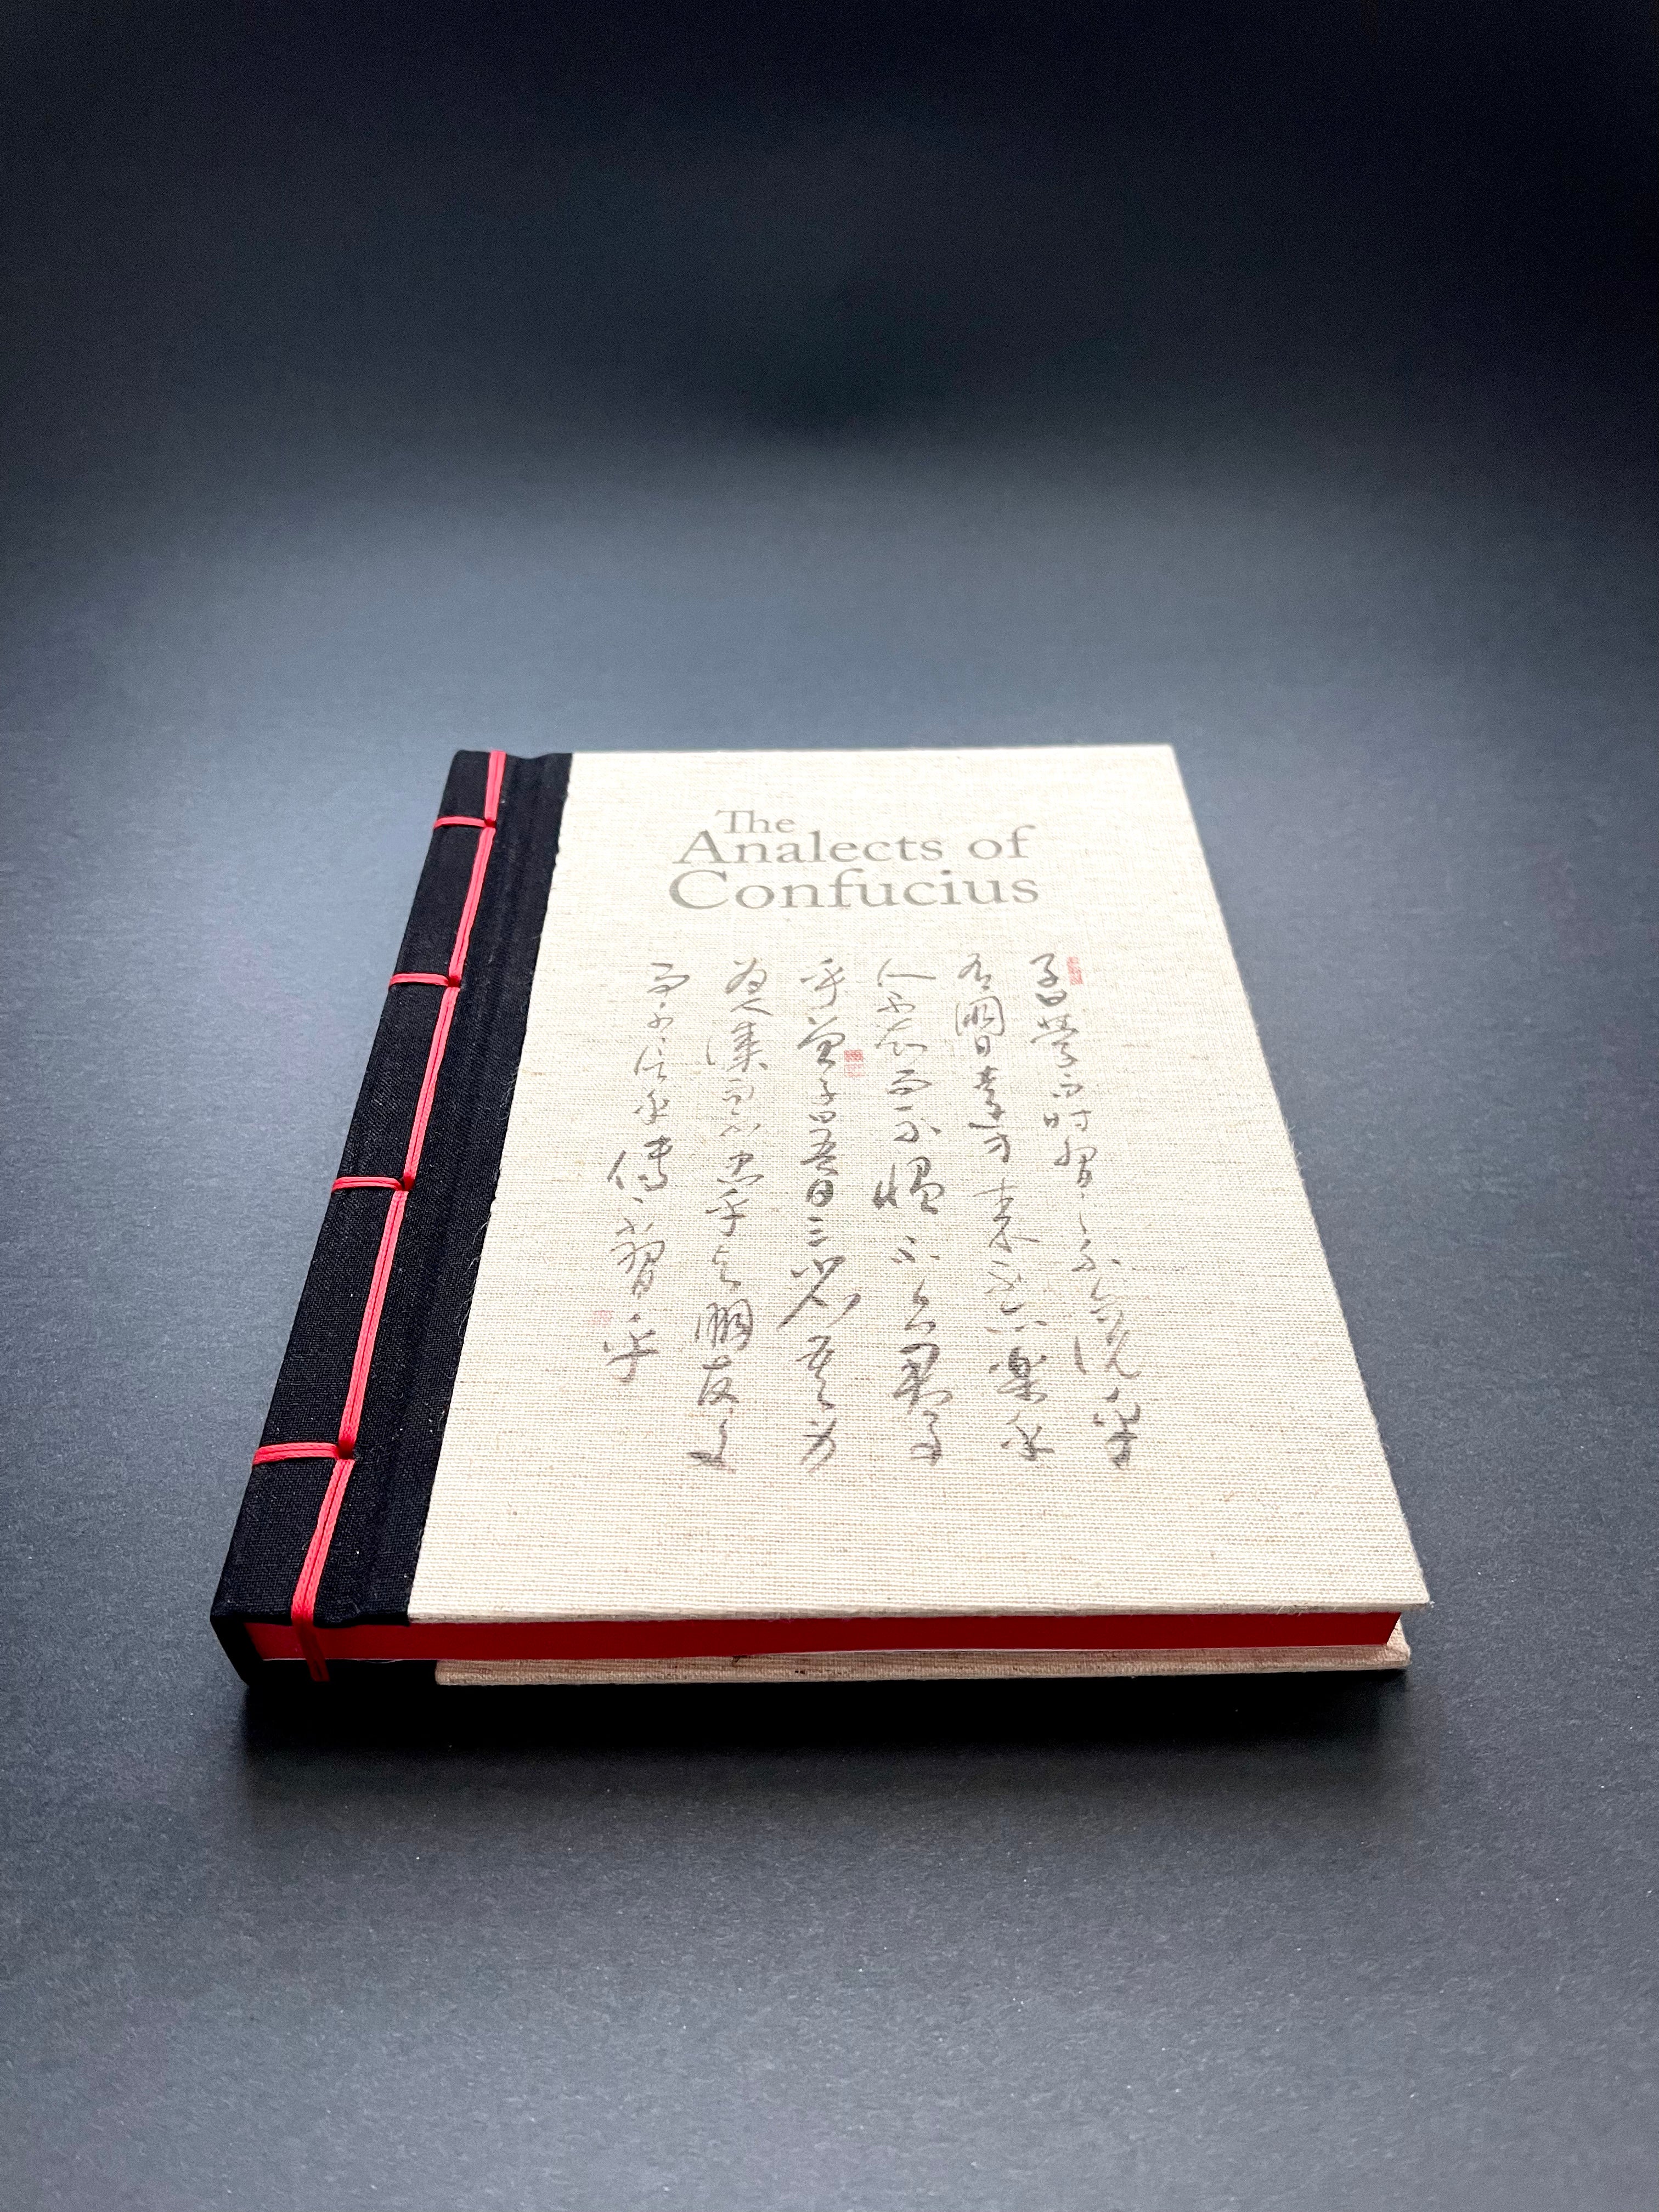 The
Analects of
Confucius
子曰學而時習之不亦説乎
有朋自遠方來不亦楽乎
人不知而不慍不亦君子
乎曾子曰吾日三省吾身
為人謀而不忠乎与朋友交
而不信乎傳不習乎